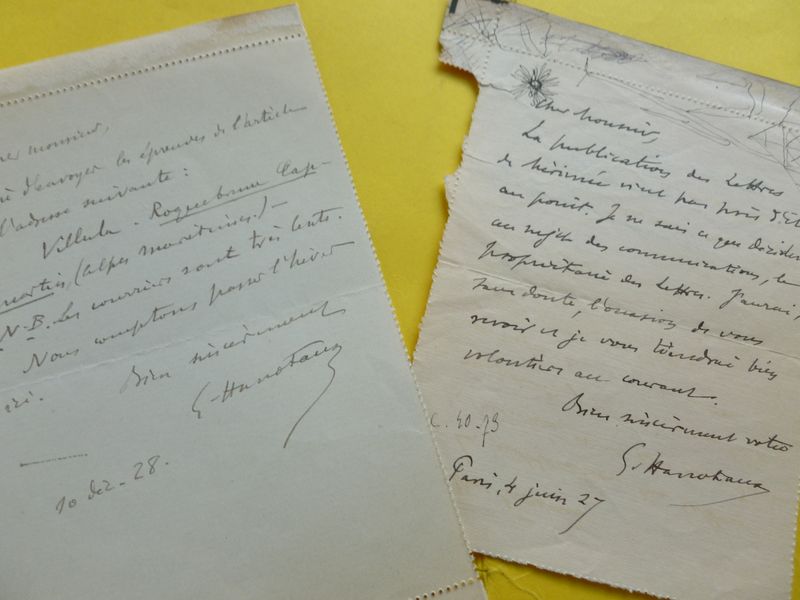 monsieur,
d'envoyer les épreuves de l'article
l'adresse suivante :
Villula - Roquebrune Cap-
martin, (alpes maritimes.) -
N.B. Les courriers sont très lents.
Nous comptons passer l'hiver
ici. Bien sincèrement
G. Hanotaux
10 déc. 28.
Cher Monsieur,
La publication des Lettres
de Mérimée n'est pas près d'êt
au point. Je ne sais ce que décidera
au sujet des communications, le
propriétaire des Lettres. J'aurai,
sans doute, l'occasion de vous
revoir et je vous tiendrai bien
volontiers au courant.
Bien sincèrement votre
G. Hanotaux
C. 40-73
Paris, 4 juin 27